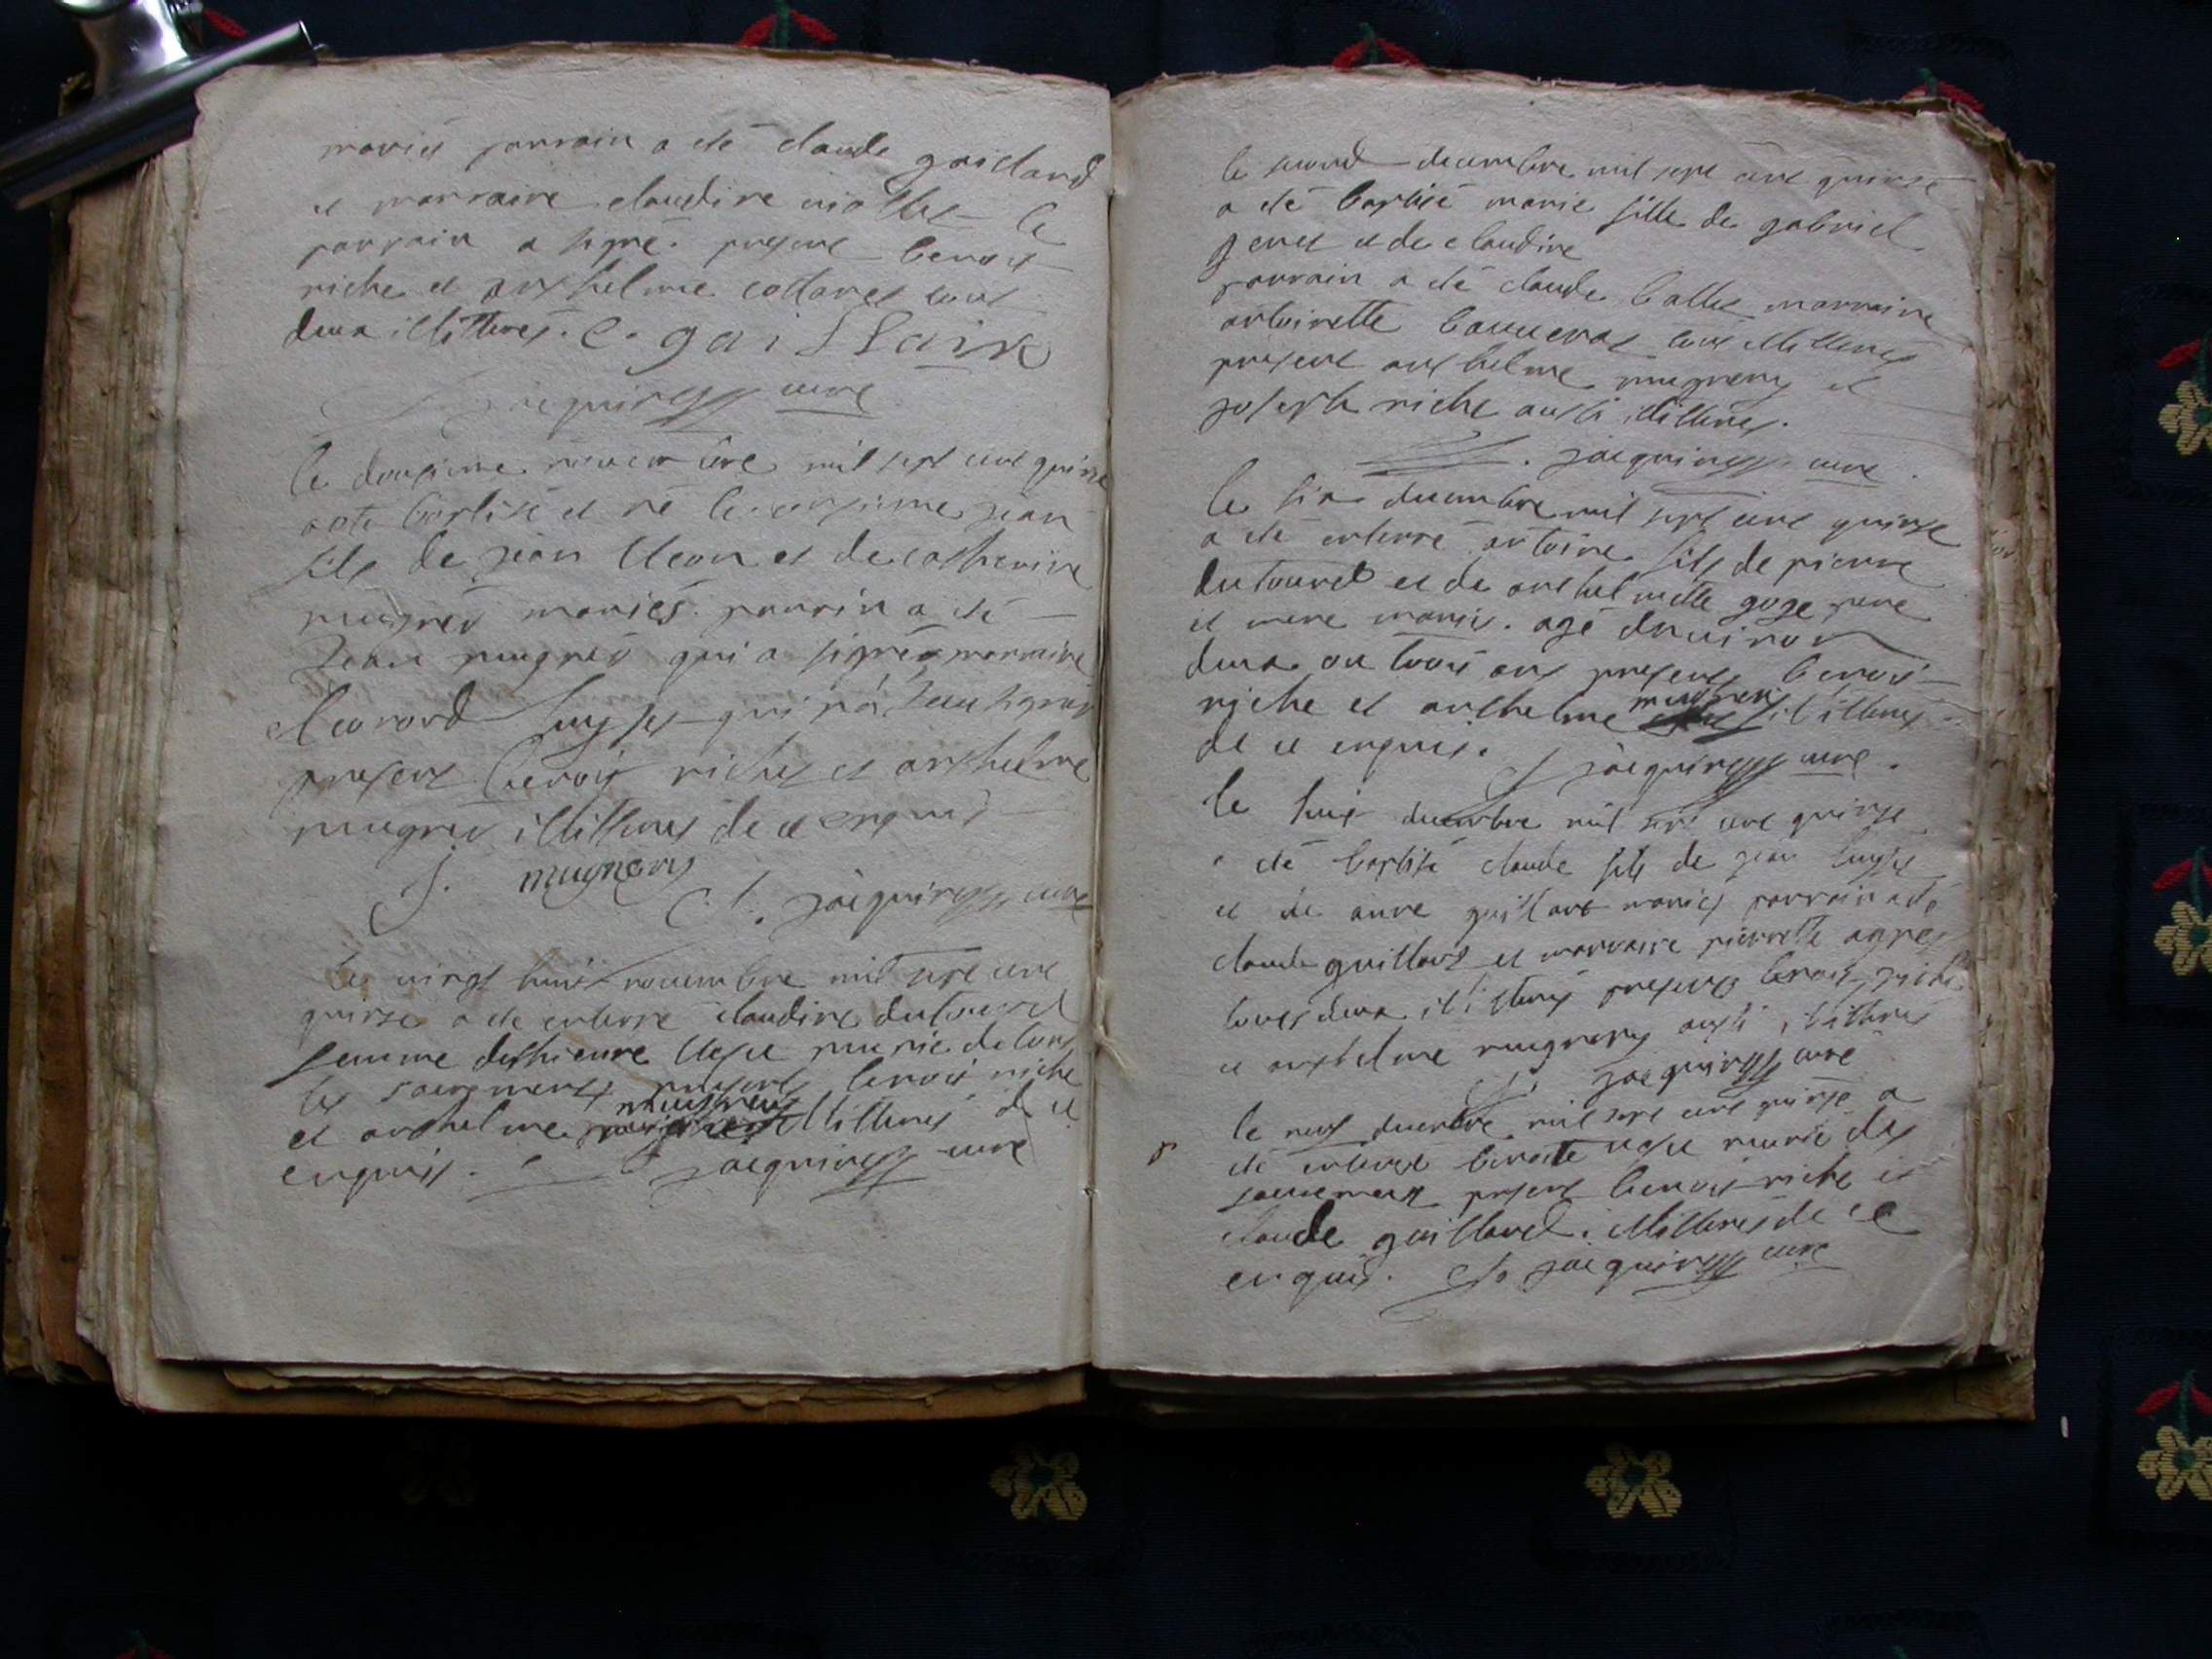 mariés parrain a été claude gaillard
et marraine claudine le
parrain a signé. present benoit
riche et anthelme tous
deux illitterés. c. gaillard
jacquines curé
le dousieme novembre mil sept cent quinse
a été baptisé et né le onsieme jean
fils de jean et de catherine
mugnery mariés. parrain a été
Jean mugnery qui a signé et marraine
qui n'a sceu signer
present benoit riche et anthelme
mugnery illitterés de ce enquis
J. mugnery
jacquines curé
le vingt huit novembre mil sept cent
quinse a été enterré claudine dutouret
femme munie de tous
les sacremens presents benoit riche
et anthelme mugnery illitterés de ce
enquis. jacquines curé
le second decembre mil sept cent quinse
a été baptisé marie fille de gabriel
genet et de claudine
parrain a été claude marraine
antoinette tous illitterés
present anthelme mugnery et
joseph riche aussi illitterés.
jacquines curé
le six decembre mil sept cent quinse
a été enterré antoine fils de pierre
dutouret et de anthelmette goge pere
et mere mariés. agé d'environ
deux ou trois ans presents benoit
riche et anthelme mugnery illitterés
de ce enquis. jacquines curé.
le huit decembre mil sept cent quinse
a été baptisé claude fils de jean
et de anne gaillard mariés parrain a été
claude gaillard et marraine pierrette
tous deux illitterés presents benoit riche
et anthelme mugnery aussi illitterés
jacquines curé
le neuf decembre mil sept cent quinse a
été enterré benoite munie des
sacremens present benoit riche et
claude gaillard. illitterés de ce
enquis. jacquines curé